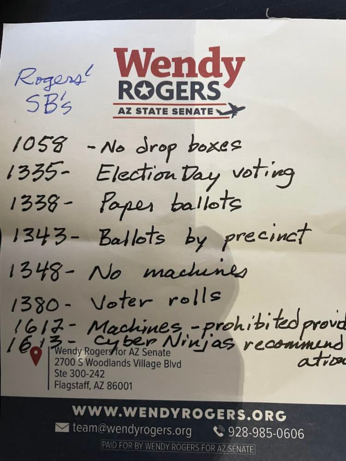 Wendy
ROGERS
AZ STATE SENATE
Rogers'
SB's
1058 - No drop boxes
1335- Election Day voting
1338- Paper ballots
1343- Ballots by precinct
1348- No machines
1380- Voter rolls
1617- Machines - prohibited provid
1613- Cyber Ninjas recommend
ation
Wendy Rogers for AZ Senate
2700 S Woodlands Village Blvd
Ste 300-242
Flagstaff, AZ 86001
WWW.WENDYROGERS.ORG
team@wendyrogers.org 928-985-0606
PAID FOR BY WENDY ROGERS FOR AZ SENATE